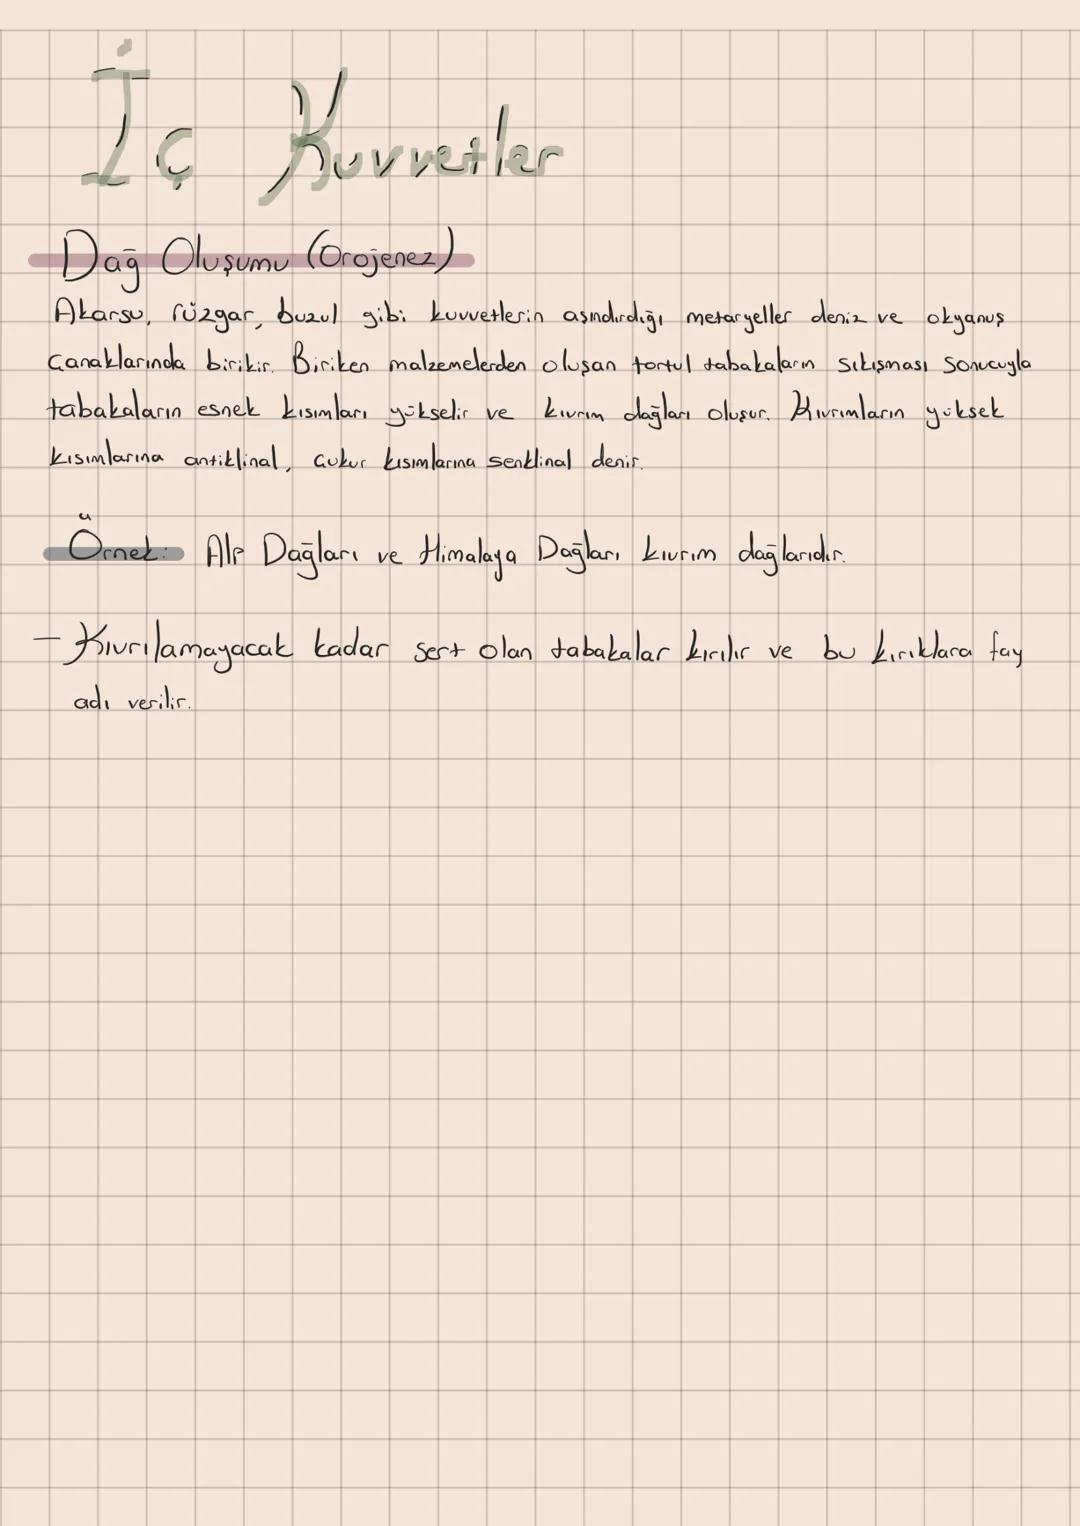 İç Kuvvetler
Dağ Oluşumu (Orojenez)
Akarsu, rüzgar, buzul gibi kuvvetlerin aşındırdığı metaryeller deniz ve okyanuş
çanaklarında birikir. Biriken malzemelerden oluşan tortul tabakaların sıkışması sonucuyla
tabakaların esnek kısımları yükselir ve kıvrım dağları oluşur. Kıvrımların yüksek
kısımlarına antiklinal, çukur kısımlarına senklinal denir.
Örnek: Alp Dağları ve Himalaya Dağları kıvrım dağlarıdır.
- Kıvrılamayacak kadar sert olan tabakalar kırılır ve bu kırıklara fay
adı verilir.